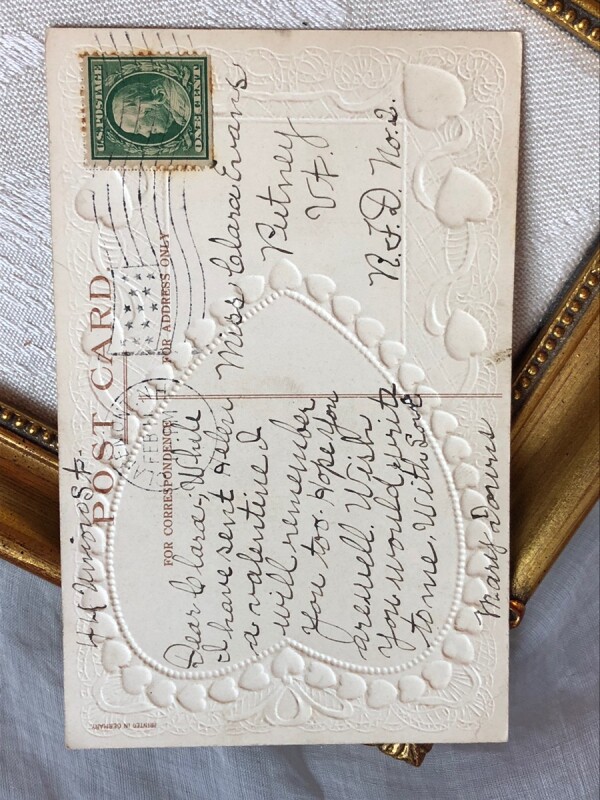 44 Union St.
POST CARD
FOR CORRESPONDENCE
FOR ADDRESS ONLY
U.S. POSTAGE
ONE CENT
FEB
Dear Clara, While
I have sent Helen
a valentine I
will remember
you too. Hope you
are well. Wish
you would write
to me. With Love
Mary Downs
Miss Clara Evans,
Putney
Vt.
R.F.D. No. 2.
PRINTED IN GERMANY